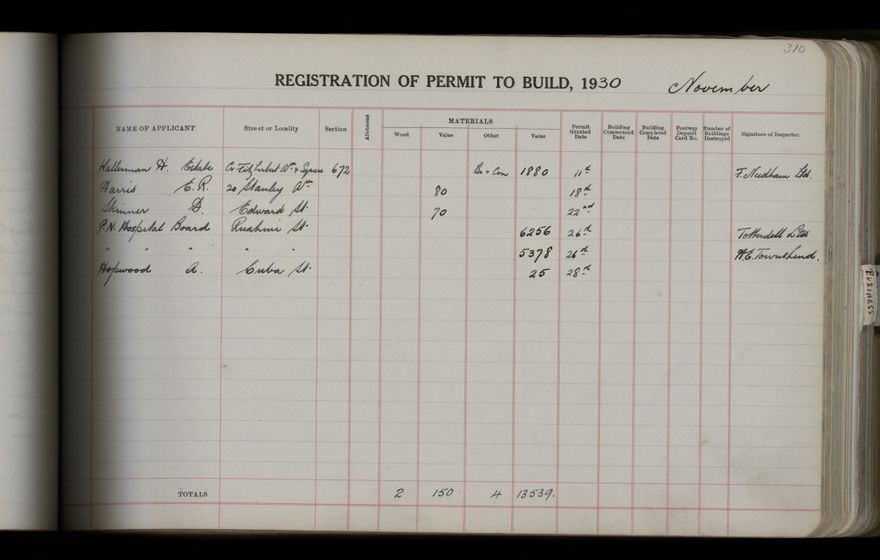 310
REGISTRATION OF PERMIT TO BUILD, 1930 November
NAME OF APPLICANT Street or Locality Section Allotment MATERIALS Wood Value Other Value Permit Granted Date Building Commenced Date Building Completed Date Footway Deposit Card No. Number of Buildings Destroyed Signature of Inspector.
Hallerman H. Estate Cr Fitzherbert 672 Br & Con 1880 11th F. Needham Ltd.
Harris E.R. 20 Stanley Ave 80 18th
Skinner D. Edward St. 70 22nd
P.N. Hospital Board Ruahine St. 6256 26th
" " " " " 5378 26th W.E. Townshend.
Hopwood A. Cuba St. 25 28th
TOTALS 2 150 4 13539.
BUSINESS